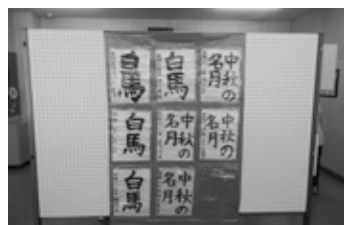 白馬
白馬
中秋の
名月
白馬
中秋の
名月
中秋の
名月
白馬
中秋の
名月